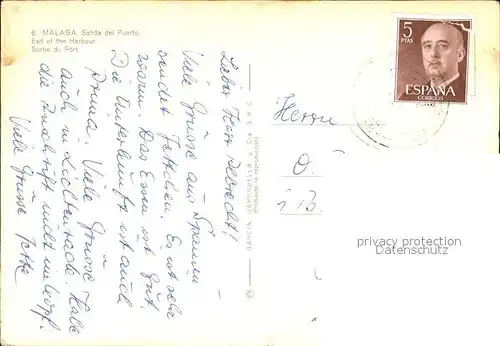 6. MALAGA. Salida del Puerto.
Exit of the Harbour.
Sortie du Port.
Lieber Herr Albrecht!
Viele Grüsse aus Spanien
sendet Jettchen. Es ist sehr
warm. Das Essen ist gut.
Die Unterkunft ist auch
prima. Viele Grüsse
auch in
die nicht
Viele Grüsse Jette
© GARCIA GARRABELLA Y Cia
(Prohibida la reproducción)
Herrn
O.
i B.
5
PTAS
ESPAÑA
CORREOS
privacy protection
watermark